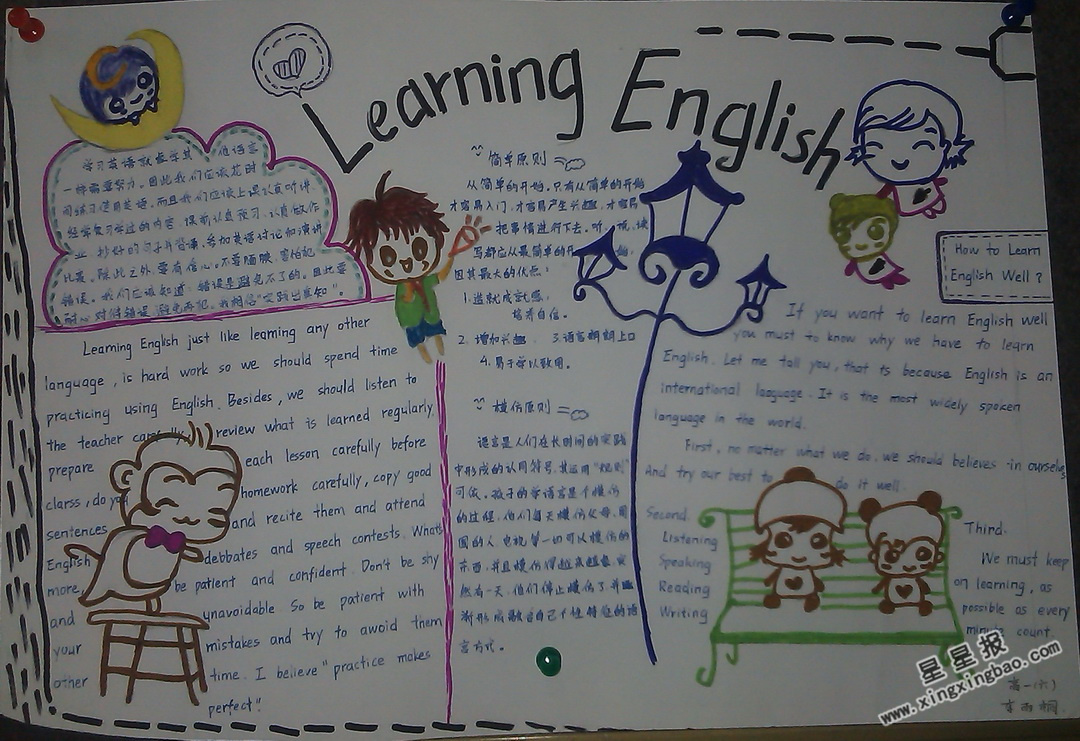 Learning English
学习英语就像学其他语言
一样需要努力。因此我们应该花时
间练习使用英语。而且我们应该上课认真听讲
经常复习学过的内容、课前认真预习、认真做作
业、抄好的句子并背诵、参加英语讨论和演讲
比赛。除此之外要有信心。不要腼腆、害怕犯
错误。我们应该知道
错误是避免不了的。因此要
耐心对待错误
避免再犯。我相信“实践出真知”。
Learning English just like learning any other
language, is hard work so we should spend time
practicing using English. Besides, we should listen to
the teacher review what is learned regularly
prepare each lesson carefully before
clarss, do you homework carefully, copy good
sentences and recite them and attend
English debbates and speech contests. Whats
more, be patient and confident. Don't be shy
and unavoidable. So be patient with
your mistakes and try to awoid them
other time. I believe "practice makes
perfect!"
简单原则
从简单的开始。只有从简单的开始
才容易入门,才容易产生兴趣,才容易
把事情进行下去。听、说、读
写都应从最简单的开始
因其最大的优点:
1.造就成就感:
培养自信。
2. 增加兴趣
3.语言朗朗上口
4.易于学以致用。
模仿原则
语言是人们在长时间的实践
中形成的认同符号,其运用“规则”
可依。孩子的学语言是个模仿
的过程,他们每天模仿父母、周
围的人、电视等一切可以模仿的
东西,并且模仿得越来越象。突
然有一天,他们停止模仿了,并逐
渐形成融合自己个性特征的语
言方式。
How to Learn
English Well?
If you want to learn English well
you must to know why we have to learn
English. Let me tell you, that is because English is an
international language. It is the most widely spoken
language in the world.
First, no matter what we do, we should believes in ourselves
And try our best to do it well.
Second.
Listening
Speaking
Reading
Writing
Third.
We must keep
on learning, as
possible as every
minute count
高一(六)
星星报
www.xingxingbao.com